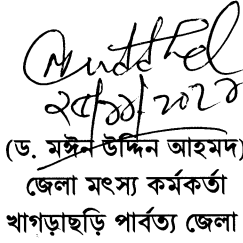 ২৫/১১/২০২১
(ড. মঈন উদ্দিন আহমদ)
জেলা মৎস্য কর্মকর্তা
খাগড়াছড়ি পার্বত্য জেলা